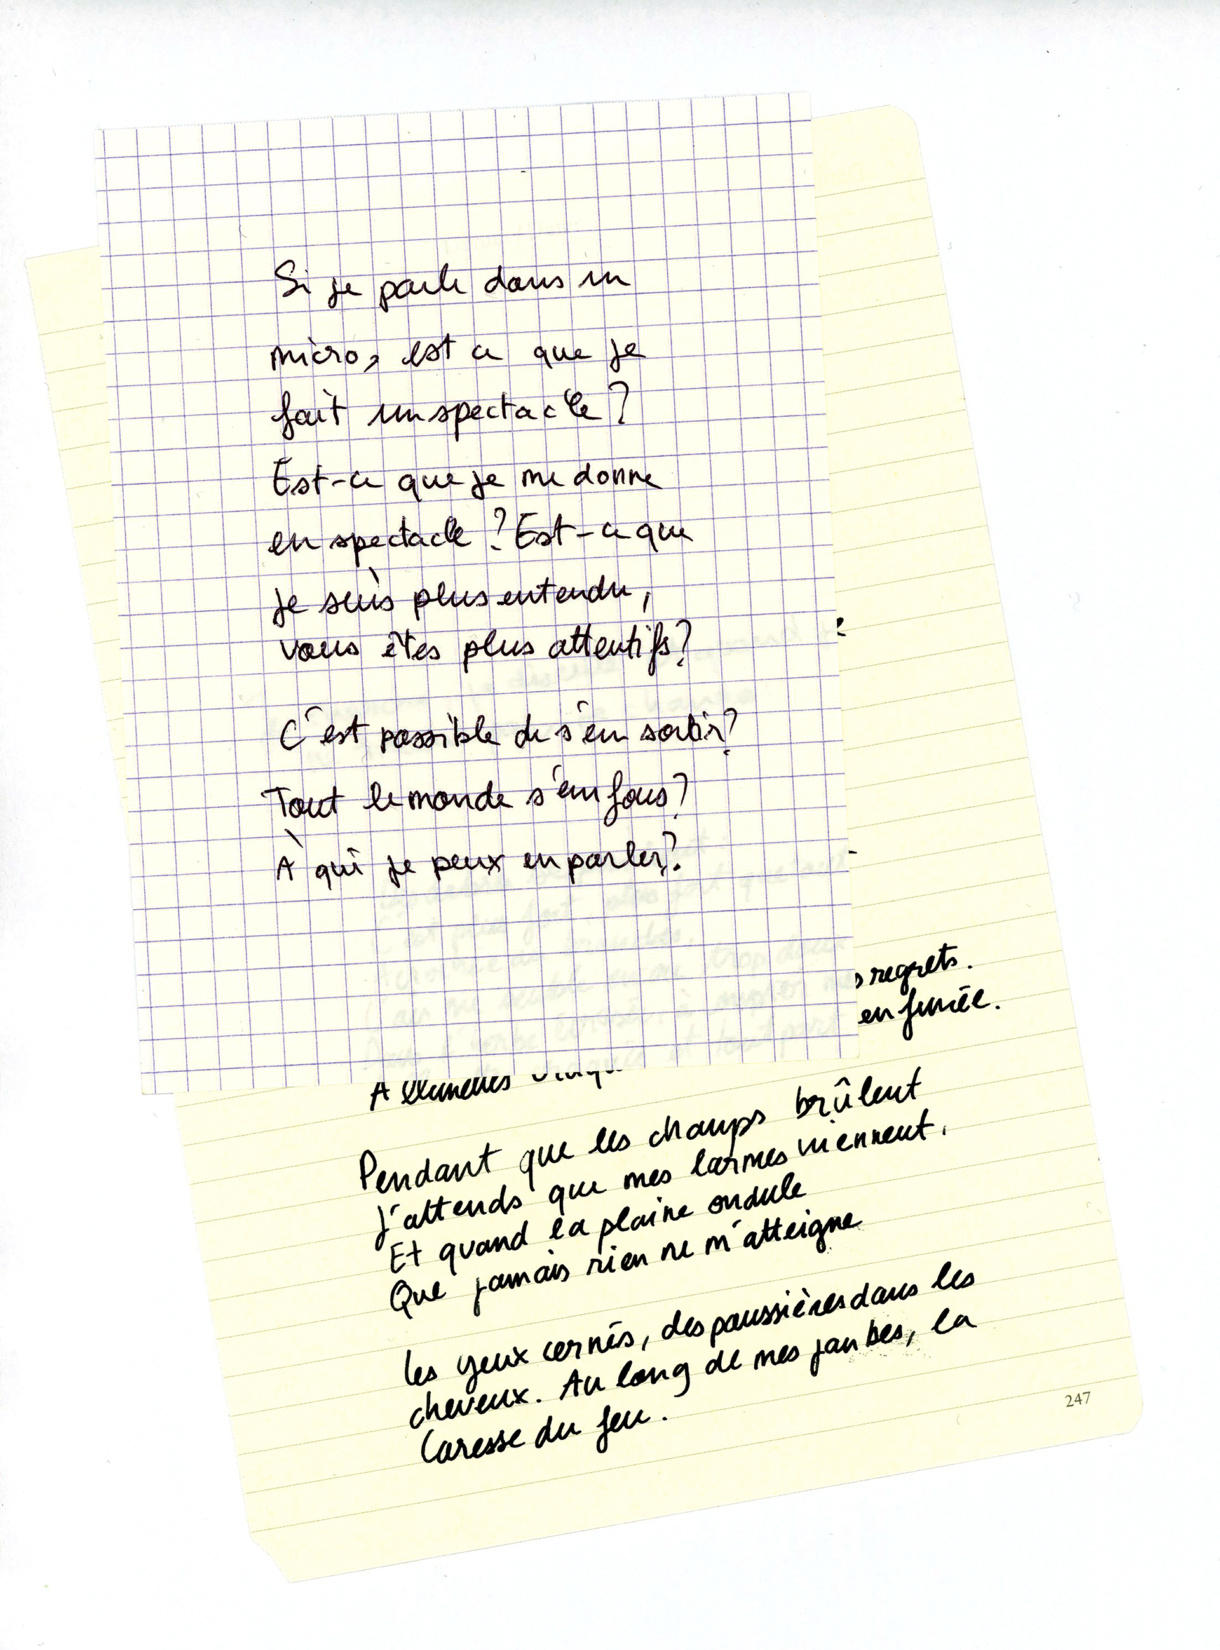 Si je parle dans un
micro, est ce que je
fait un spectacle ?
Est-ce que je me donne
en spectacle ? Est-ce que
je suis plus entendu,
vous êtes plus attentifs ?
C'est possible de s'en sortir ?
Tout le monde s'en fous ?
À qui je peux en parler ?
regrets.
en fumée.
Pendant que les champs brûlent
J'attends que mes larmes viennent.
Et quand la plaine ondule
Que jamais rien ne m'atteigne
les yeux cernés, des poussières dans les
cheveux. Au long de mes jambes, la
Caresse du feu.
247